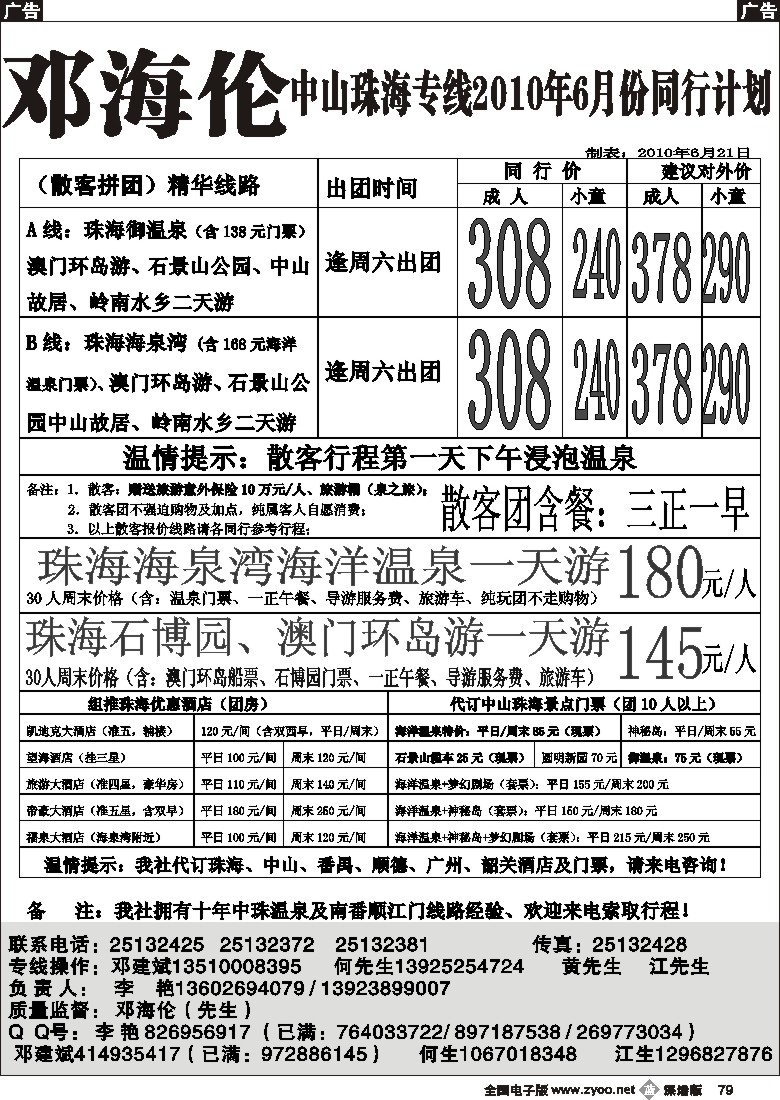 广告 广告
邓海伦中山珠海专线2010年6月份同行计划
制表：2010年6月21日
（散客拼团）精华线路 出团时间 同行价 建议对外价
成人 小童 成人 小童
A线：珠海御温泉（含138元门票）
澳门环岛游、石景山公园、中山
故居、岭南水乡二天游
逢周六出团 308 240 378 290
B线：珠海海泉湾（含168元海洋
温泉门票）、澳门环岛游、石景山公
园中山故居、岭南水乡二天游
逢周六出团 308 240 378 290
温情提示：散客行程第一天下午浸泡温泉
备注：1. 散客：赠送旅游意外保险10万元/人、旅游帽（泉之旅）；
2. 散客团不强迫购物及加点，纯属客人自愿消费；
3. 以上散客报价线路请各同行参考行程；
散客团含餐：三正一早
珠海海泉湾海洋温泉一天游 180元/人
30人周末价格（含：温泉门票、一正午餐、导游服务费、旅游车、纯玩团不走购物）
珠海石博园、澳门环岛游一天游 145元/人
30人周末价格（含：澳门环岛船票、石博园门票、一正午餐、导游服务费、旅游车）
组推珠海优惠酒店（团房） 代订中山珠海景点门票（团10人以上）
凯迪克大酒店（准五，轴楼） 120元/间（含双西早，平日/周末） 海洋温泉特价：平日/周末85元（现票） 神秘岛：平日/周末55元
望海酒店（挂三星） 平日100元/间 周末120元/间 石景山缆车25元（现票） 圆明新园70元 御温泉：75元（现票）
旅游大酒店（准四星，豪华房） 平日110元/间 周末140元/间 海洋温泉+梦幻剧场（套票）：平日155元/周末200元
帝豪大酒店（准五星，含双早） 平日180元/间 周末250元/间 海洋温泉+神秘岛（套票）：平日150元/周末180元
福泉大酒店（海泉湾附近） 平日100元/间 周末120元/间 海洋温泉+神秘岛+梦幻剧场（套票）：平日215元/周末250元
温情提示：我社代订珠海、中山、番禺、顺德、广州、韶关酒店及门票，请来电咨询！
备 注：我社拥有十年中珠温泉及南番顺江门线路经验、欢迎来电索取行程！
联系电话：25132425 25132372 25132381 传真：25132428
专线操作：邓建斌13510008395 何先生13925254724 黄先生 江先生
负责人： 李 艳13602694079/13923899007
质量监督：邓海伦（先生）
Q Q号：李艳826956917（已满：764033722/897187538/269773034）
邓建斌414935417（已满：972886145） 何生1067018348 江生1296827876
全国电子版 www.zyoo.net 蓝 深港版 79